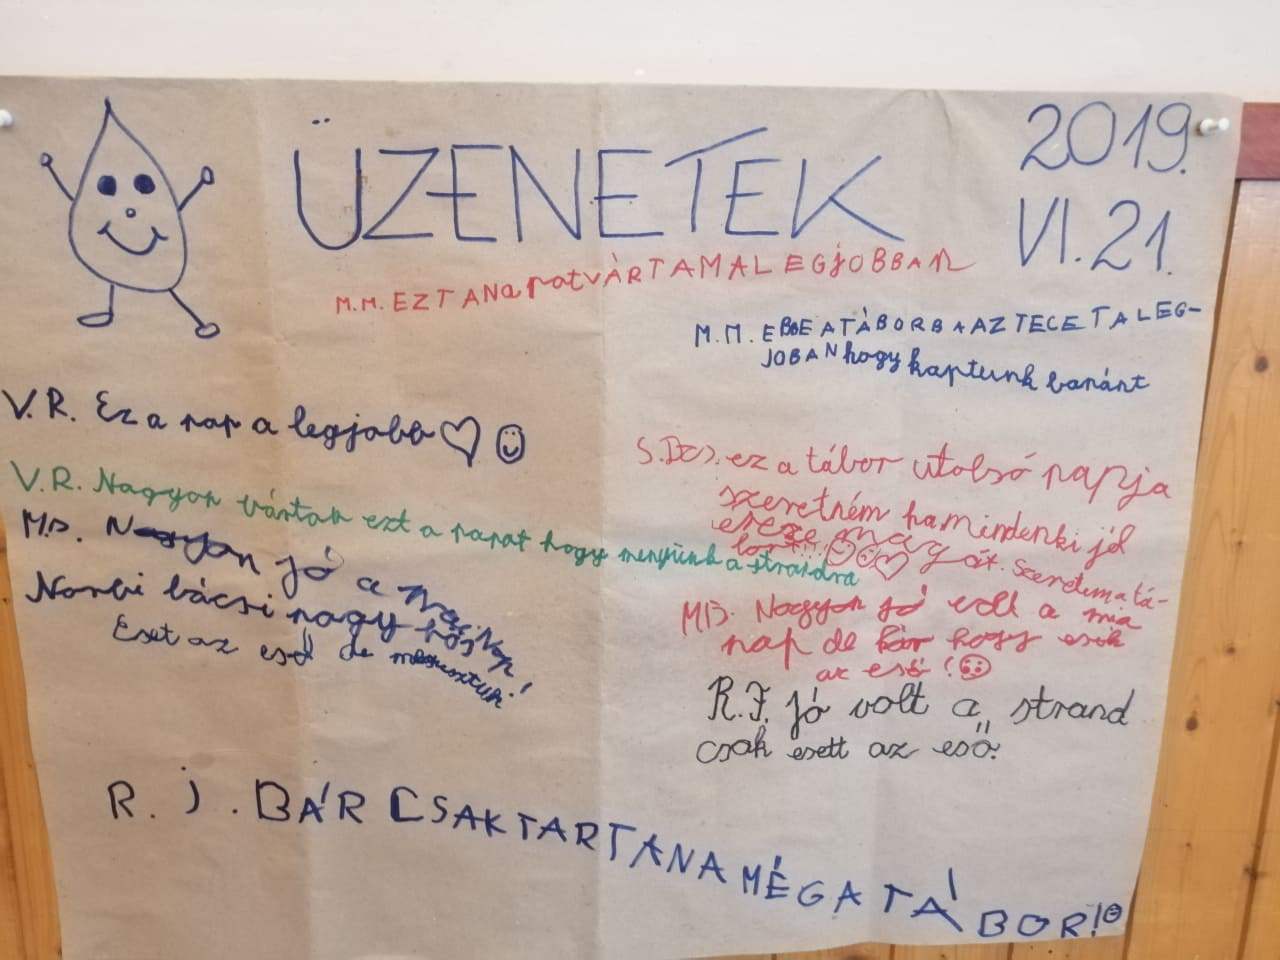 ÜZENETEK
2019.
VI.21.
M.M. EZT A NapatVÁRTAM A LEGJOBBAN
M.M. EBBE A TÁBORBA AZ TECETA LEG-
JOBAN hogy kaptunk banánt
V.R. Ez a nap a legjobb
V.R. Nagyon vártam ezt a napot hogy menjünk a strandra
MB. Nagyon jó a mai Nap!
Norbi bácsi nagy hős
Eset az eső de megusztuk!
S.Dzs. ez a tábor utolsó napja
szeretném ha mindenki jól
érezze magát. Szeretem a tá-
bort!!!
MB. Nagyon jó volt a mia
nap de kár hogy esik
az eső!
R.F. jó volt a strand
csak esett az eső.
R. J. BÁR CSAK TARTANA MÉG A TÁBOR!